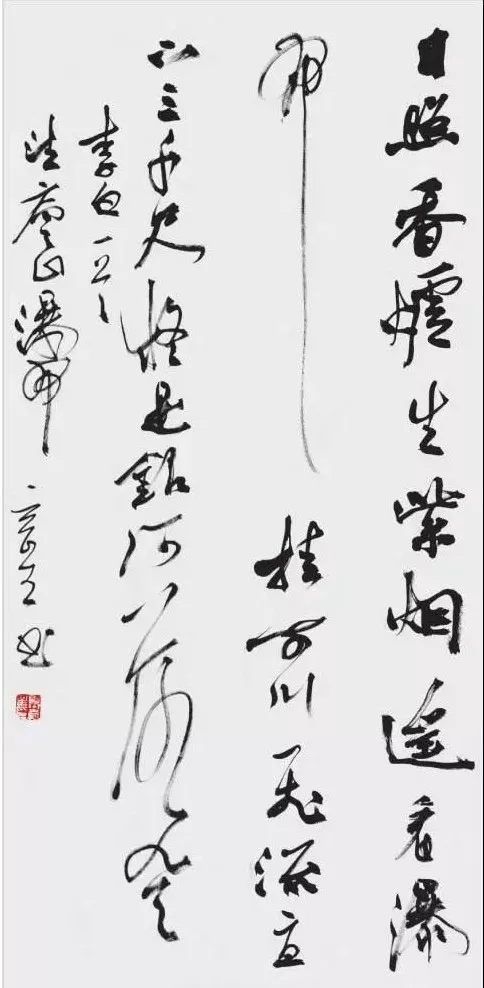 日照香爐生紫烟遥看瀑
布挂前川飛流直
下三千尺疑是銀河落九天
李白
望廬山瀑布 书